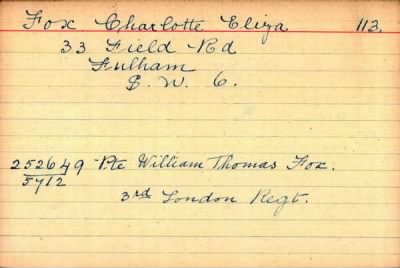 Fox Charlotte Eliza 113.
33 Field Rd
Fulham
S. W. 6.
252649 Pte William Thomas Fox.
5712
3rd London Regt.